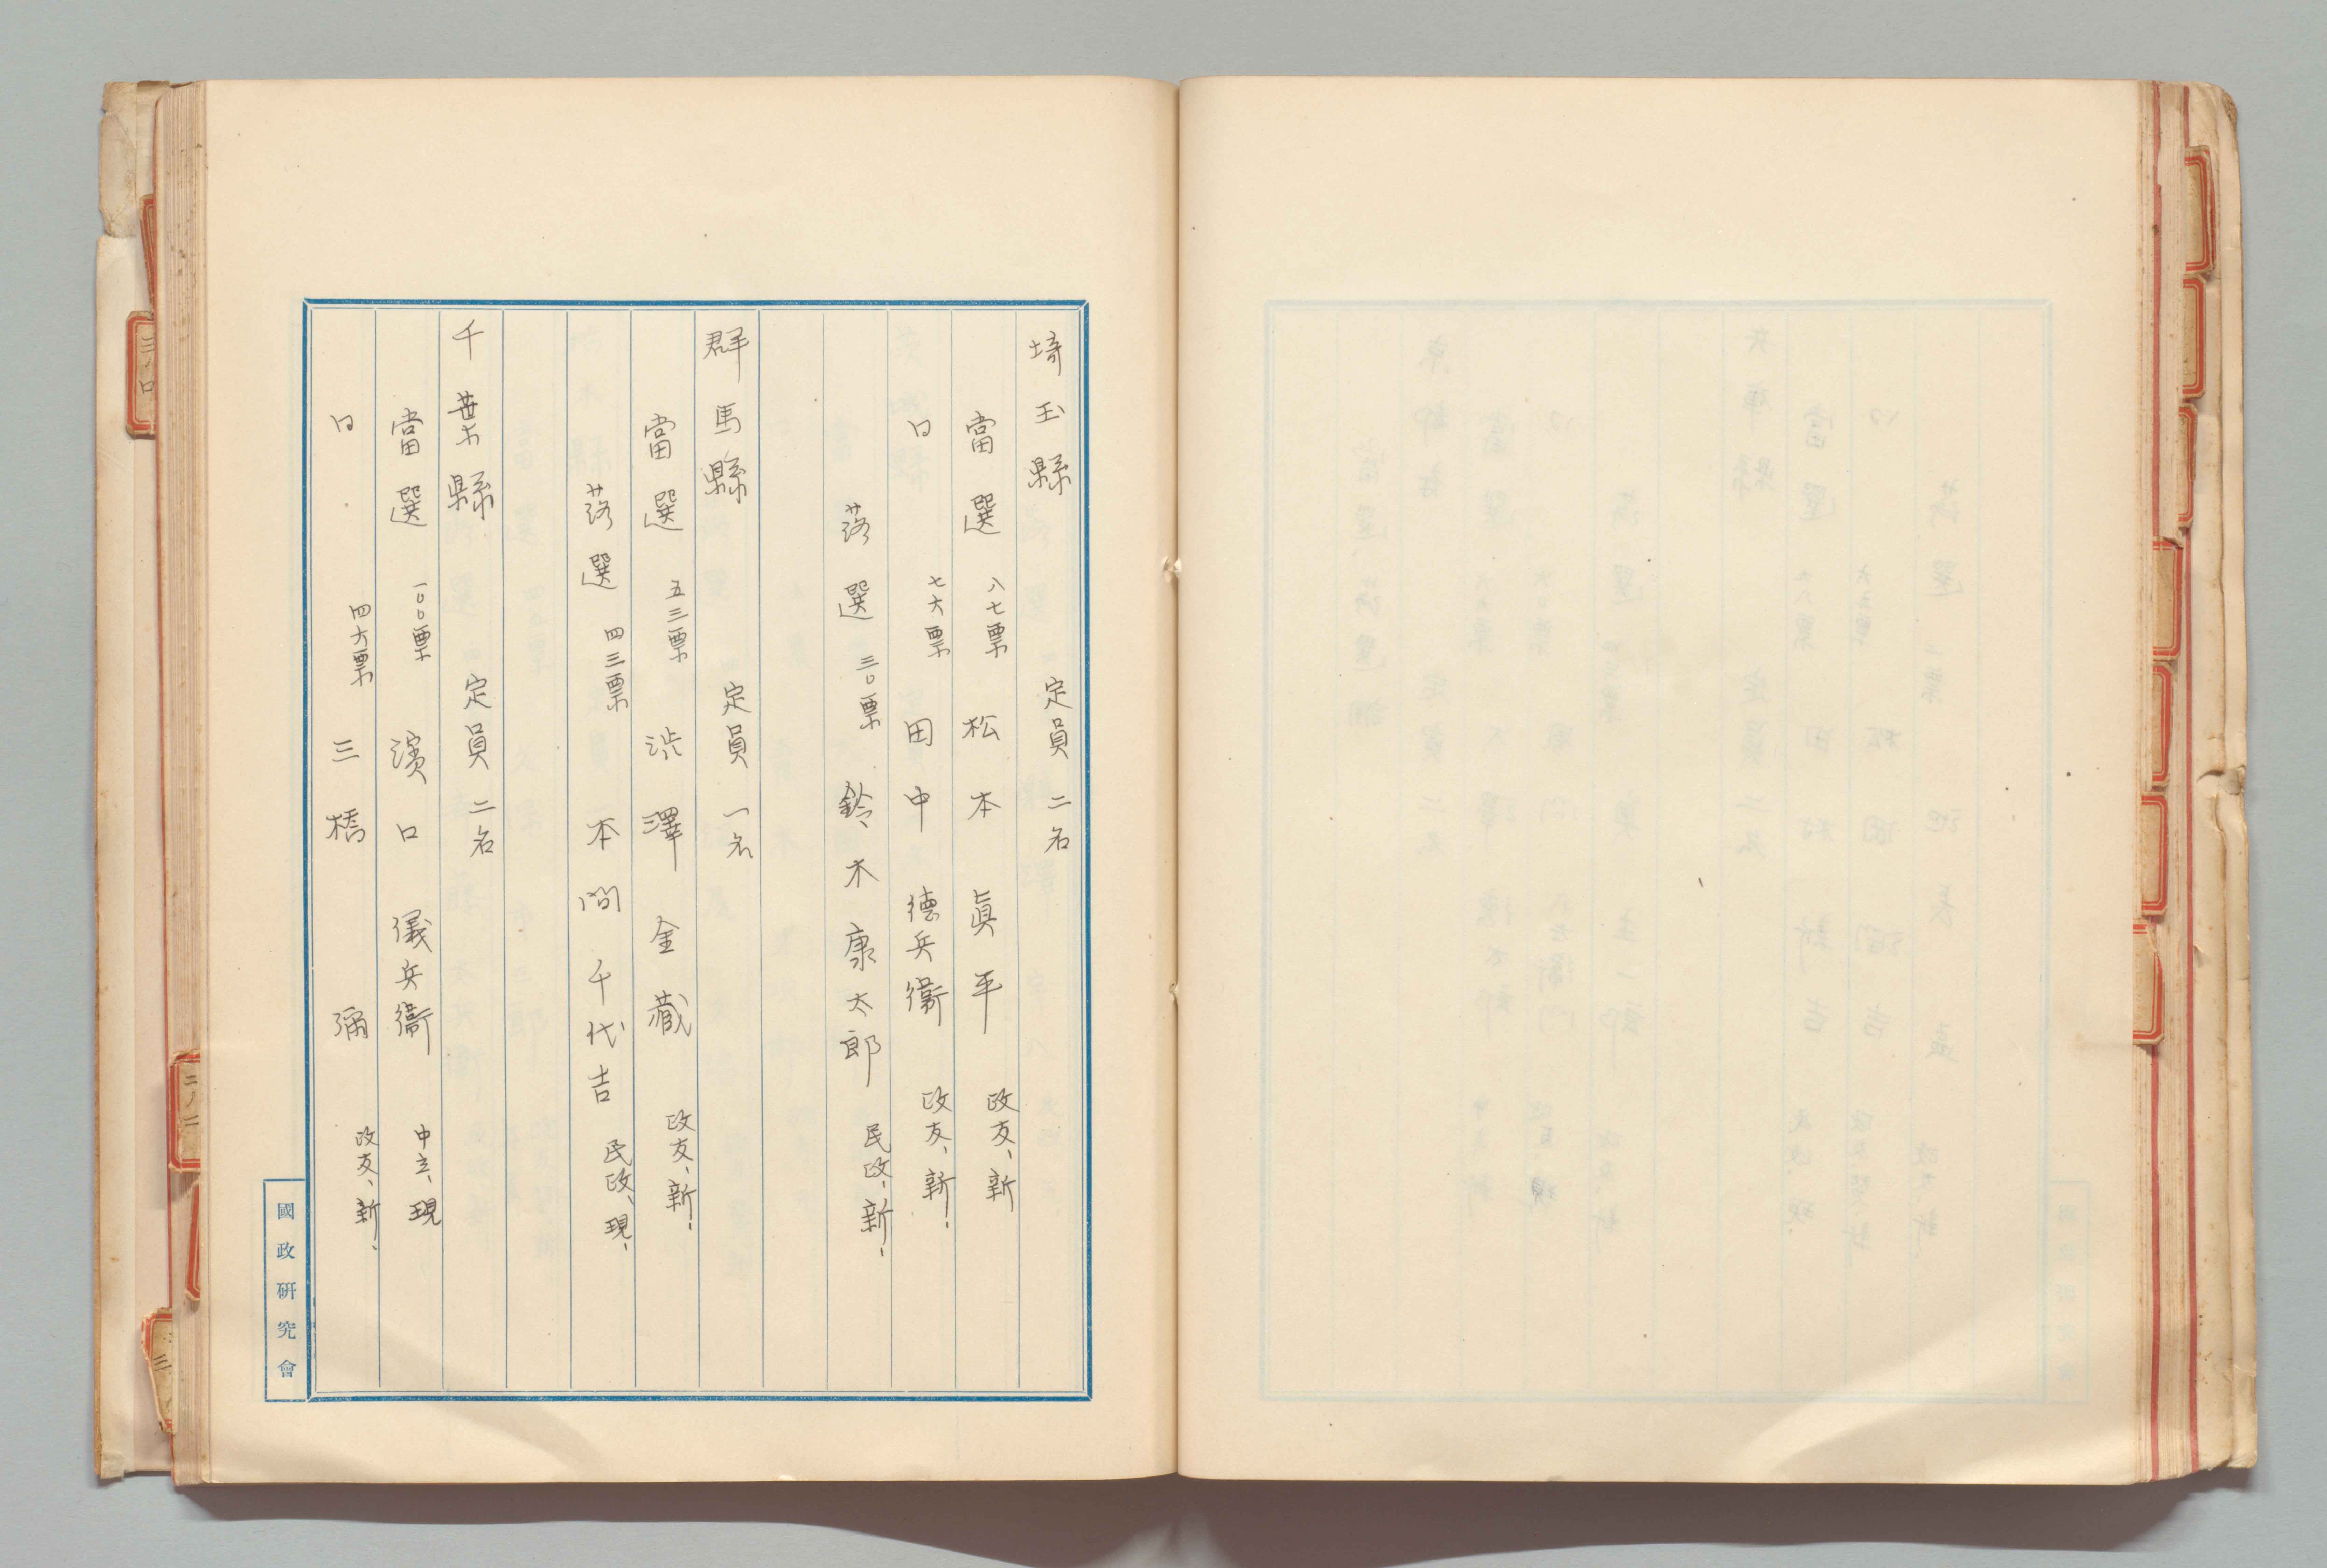 埼玉縣 定員 二名
當選 八七票 松本眞平 政友、新
〃 七六票 田中德兵衞 政友、新、
落選 三〇票 鈴木康太郎 民政、新、
群馬縣 定員 一名
當選 五三票 渋澤金藏 政友、新、
落選 四三票 本間千代吉 民政、現、
千葉縣 定員 二名
當選 一〇〇票 濱口儀兵衞 中立、現
〃 四六票 三橋彌 政友、新、
國政研究會
三ノ口
二ノ二
三